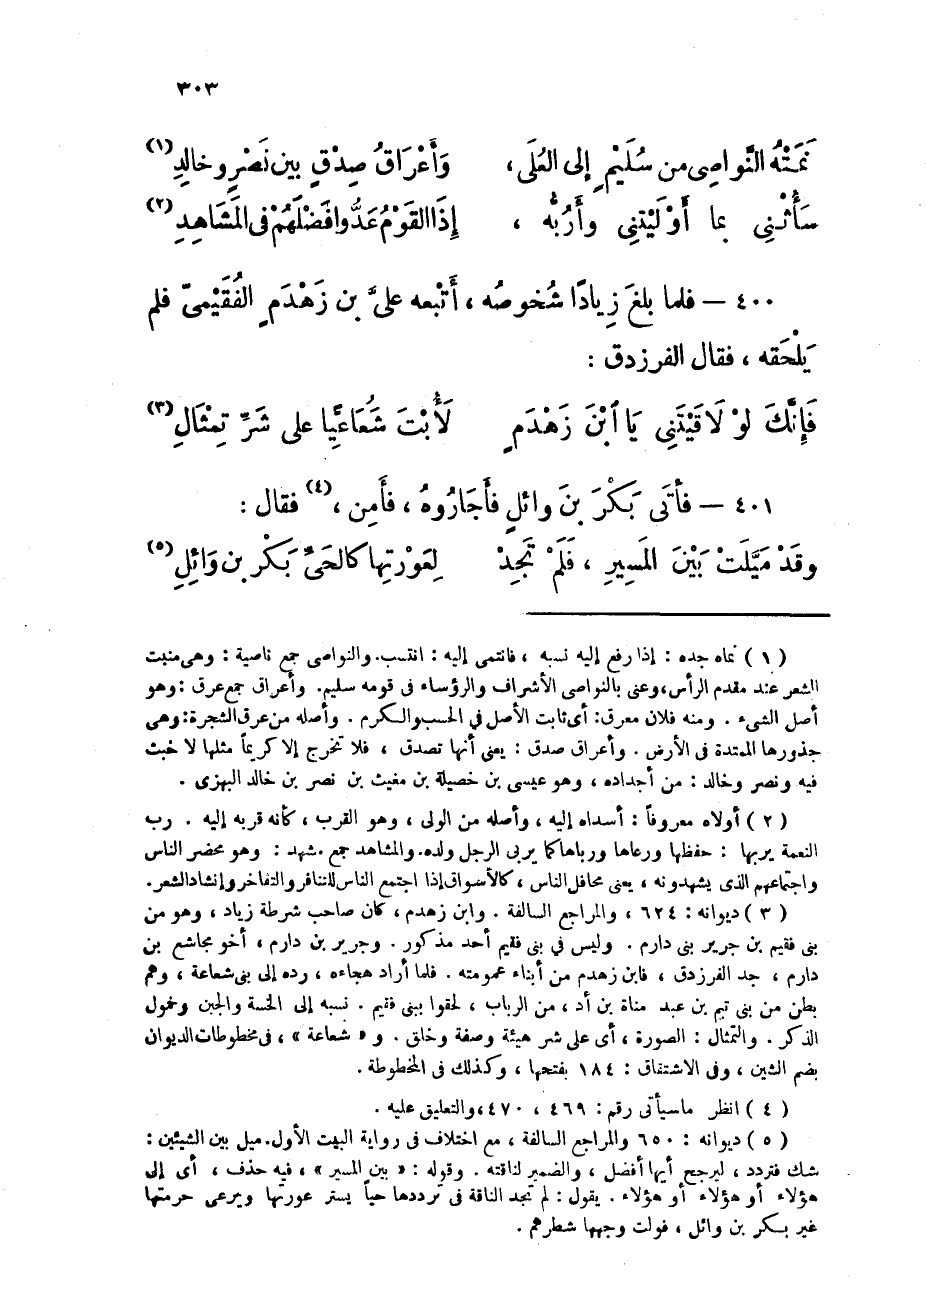 ٣٠٣
نَمَتْهُ النَّواصِى من سُلَيْمٍ إلى العُلَى، وَأَعْرَاقُ صِدْقٍ بين نَصْرٍ وخالدِ (١)
سَأُثْنِى بما أَوْلَيْتَنِى وأَرُبُّه ، إِذَا القَوْمُ عَدُّوا فَضْلَهُمْ فى المَشَاهِدِ (٢)
٤٠٠ — فلما بلغَ زِيادًا شُخوصُه ، أَتْبعه علىَّ بن زَهْدَمٍ الفُقَيْمىّ فلم
يَلْحَقه ، فقال الفرزدق :
فَإِنَّكَ لوْ لَاقَيْتَنِى يَا ٱبْنَ زَهْدَمٍ لَأُبْتَ شُعَاعِيًّا على شَرِّ تِمْثَالِ (٣)
٤٠١ — فأتَى بَكْرَ بنَ وائلٍ فأَجَارُوهُ ، فأَمِن ، (٤) فقال :
وقَدْ مَيَّلَتْ بَيْنَ المَسِيرِ ، فَلَمْ تَجِدْ لِعَوْرَتِها كالحَىِّ بَكْرِ بن وَائِلِ (٥)
( ١ ) نماه جده : إذا رفع إليه نسبه ، فانتمى إليه : انتسب. والنواصى جمع ناصية : وهى منبت
الشعر عند مقدم الرأس، وعنى بالنواصى الأشراف والرؤساء فى قومه سليم. وأعراق جمع عرق : وهو
أصل الشىء . ومنه فلان معرق: أى ثابت الأصل في الحسب والكرم . وأصله من عرق الشجرة: وهى
جذورها الممتدة فى الأرض . وأعراق صدق : يعنى أنها تصدق ، فلا تخرج إلا كريماً مثلها لا خبث
فيه ونصر وخالد : من أجداده ، وهو عيسى بن خصيلة بن مغيث بن نصر بن خالد البهزى .
( ٢ ) أولاه معروفاً : أسداه إليه ، وأصله من الولى ، وهو القرب ، كأنه قربه إليه . رب
النعمة يربها : حفظها ورعاها ورباها كما يربى الرجل ولده. والمشاهد جمع مشهد : وهو محضر الناس
واجتماعهم الذى يشهدونه ، يعنى محافل الناس ، كالأسواق إذا اجتمع الناس للتنافر والتفاخر وإنشاد الشعر.
( ٣ ) ديوانه : ٦٢٤ ، والمراجع السالفة . وابن زهدم ، كان صاحب شرطة زياد ، وهو من
بنى فقيم بن جرير بنى دارم . وليس في بنى فقيم أحد مذكور . وجرير بن دارم ، أخو مجاشع بن
دارم ، جد الفرزدق ، فابن زهدم من أبناء عمومته . فلما أراد هجاءه ، رده إلى بنى شعاعة ، وهم
بطن من بنى تيم بن عبد مناة بن أد ، من الرباب ، لحقوا ببنى فقيم . نسبه إلى الخسة والجبن وخمول
الذكر . والتمثال : الصورة ، أى على شر هيئة وصفة وخلق . و « شعاعة » ، فى مخطوطات الديوان
بضم الشين ، وفى الاشتقاق : ١٨٤ بفتحها ، وكذلك فى المخطوطة .
( ٤ ) انظر ماسيأتى رقم : ٤٦٩ ، ٤٧٠ ، والتعليق عليه .
( ٥ ) ديوانه : ٦٥٠ والمراجع السالفة ، مع اختلاف فى رواية البيت الأول. ميل بين الشيئين :
شك فتردد ، ليرجع أيها أفضل ، والضمير لناقته . وقوله : « بين المسير » ، فيه حذف ، أى إلى
هؤلاء أو هؤلاء أو هؤلاء . يقول : لم تجد الناقة فى ترددها حياً يستر عورتها ويرعى حرمتها
غير بكر بن وائل ، فولت وجهها شطرهم .